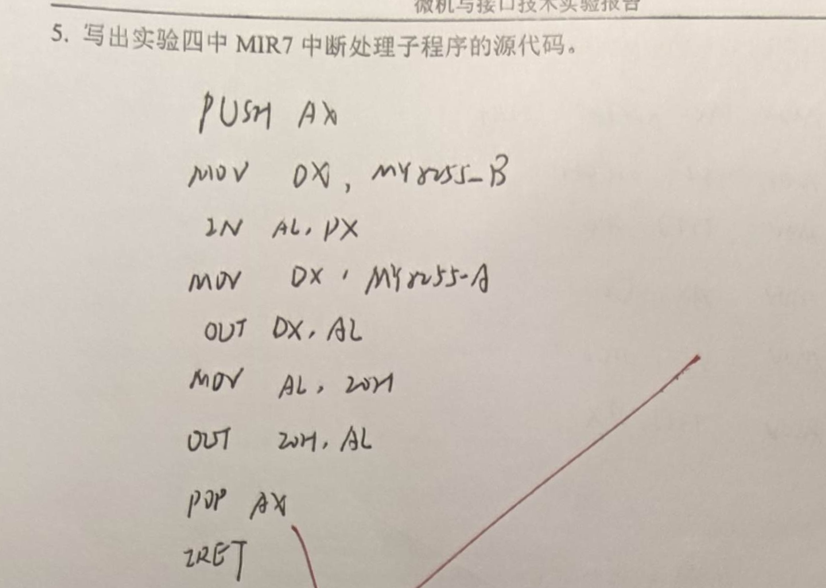 微机与接口技术实验报告
5. 写出实验四中 MIR7 中断处理子程序的源代码。
PUSH AX
MOV DX, MY8255-B
IN AL, DX
MOV DX, MY8255-A
OUT DX, AL
MOV AL, 20H
OUT 20H, AL
POP AX
IRET